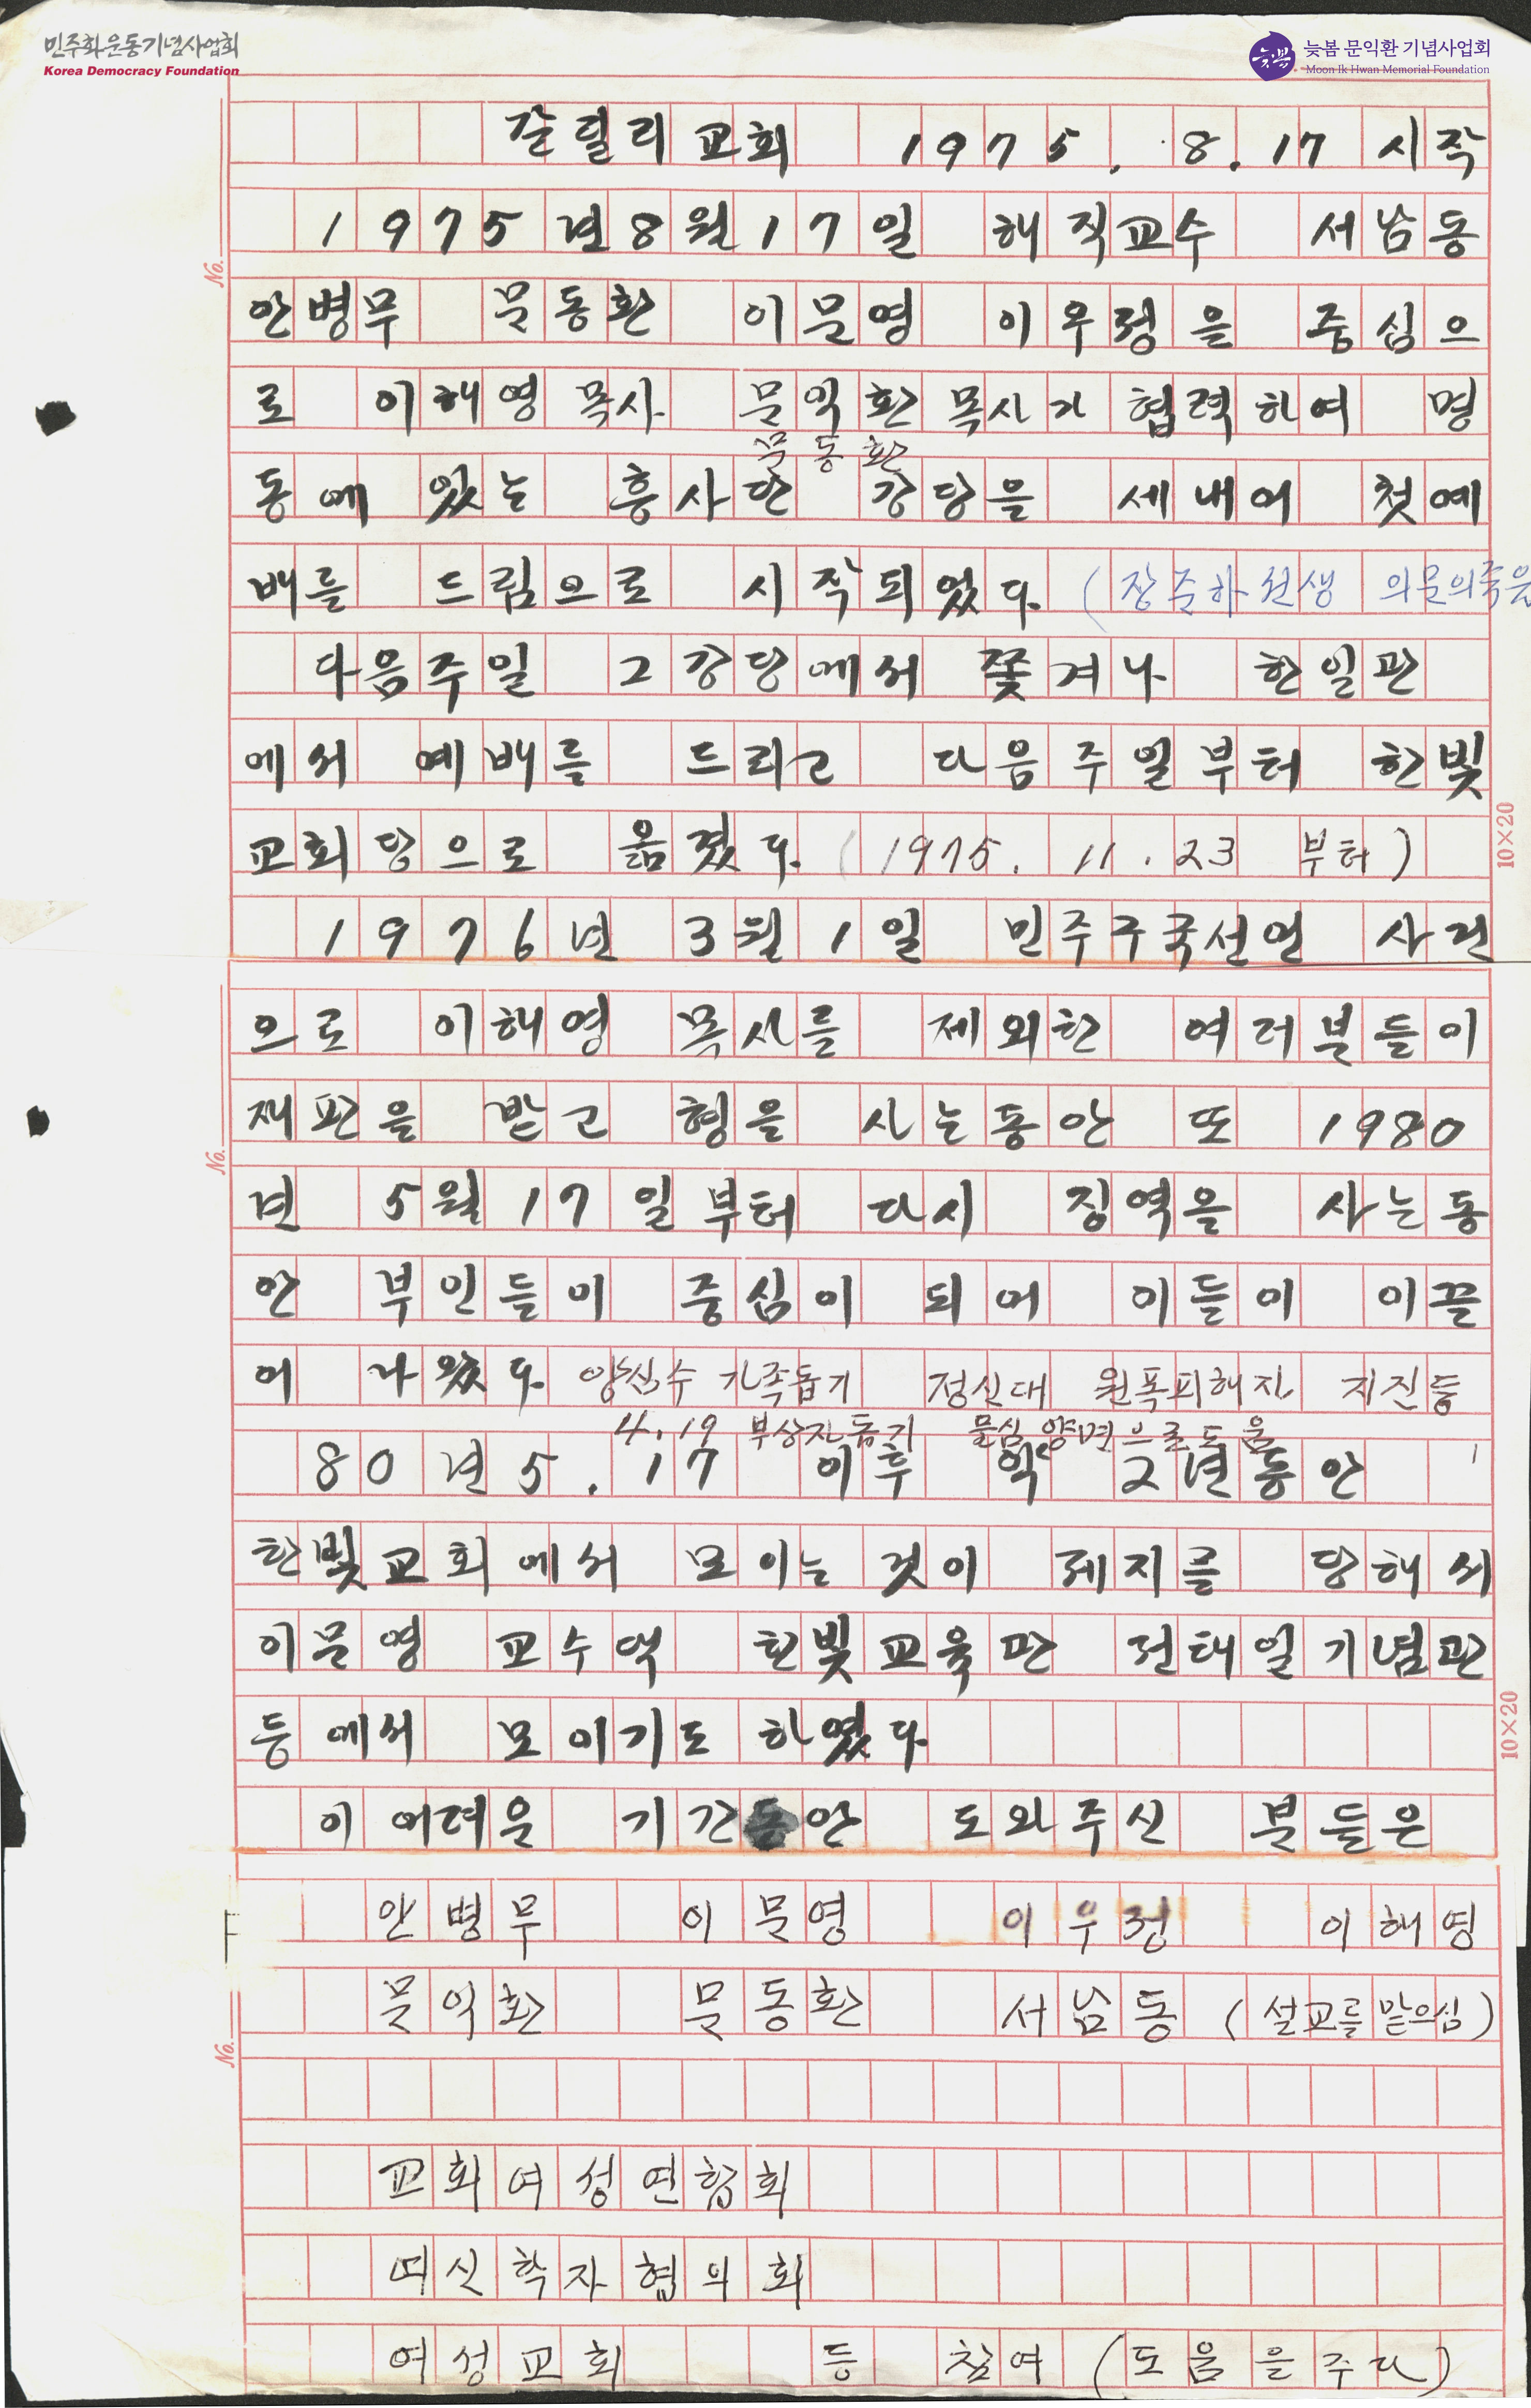 민주화운동기념사업회
Korea Democracy Foundation
늦봄 문익환 기념사업회
Moon Ik Hwan Memorial Foundation
갈릴리교회 1975. 8. 17 시작
No.
1975년 8월 17일 해직교수 서남동
안병무 문동환 이문영 이우정을 중심으
로 이해영목사 문익환목사가 협력하여 명
문동환
동에 있는 흥사단 강당을 세내어 첫예
배를 드림으로 시작되었다. (장준하선생 의문의죽음
다음주일 그강당에서 쫓겨나 한일관
에서 예배를 드리고 다음주일부터 한빛
교회당으로 옮겼다. (1975. 11. 23 부터)
10×20
1976년 3월 1일 민주구국선언 사건
으로 이해영 목사를 제외한 여러분들이
재판을 받고 형을 사는동안 또 1980
No.
년 5월 17일부터 다시 징역을 사는동
안 부인들이 중심이 되어 이들이 이끌
어 나왔다. 양심수 가족돕기 정신대 원폭피해자 지진등
4.19 부상자돕기 물심양면으로도움
80년 5.17 이후 약 2년동안
한빛교회에서 모이는 것이 제지를 당해서
이문영 교수댁 한빛교육관 전태일기념관
등에서 모이기도 하였다.
10×20
이 어려운 기간동안 도와주신 분들은
안병무 이문영 이우정 이해영
문익환 문동환 서남동 (설교를 맡으심)
No.
교회여성연합회
여신학자협의회
여성교회 등 참여 (도움을 주다)